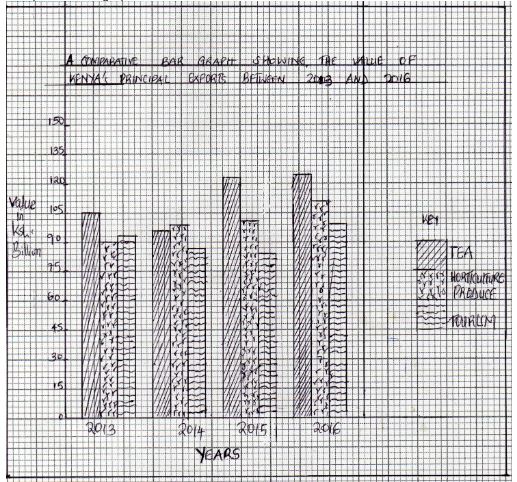 A COMPARATIVE BAR GRAPH SHOWING THE VALUE OF
KENYA'S PRINCIPAL EXPORTS BETWEEN 2013 AND 2016
150
135
120
105
90
75
60
45
30
15
0
Value
in
Ksh.
Billion
KEY
TEA
HORTICULTURE
PRODUCE
TOURISM
2013
2014
2015
2016
YEARS